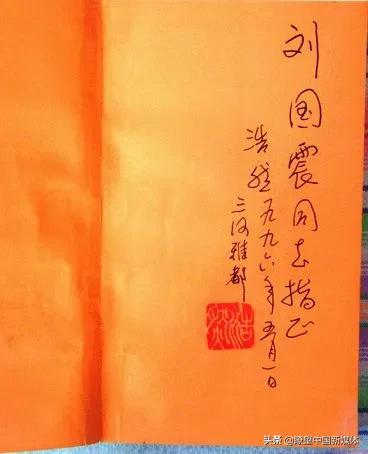 刘国震同志指正
浩然一九九六年五月一日
三河雅都
浩然
头条 @瞭望中国新媒体